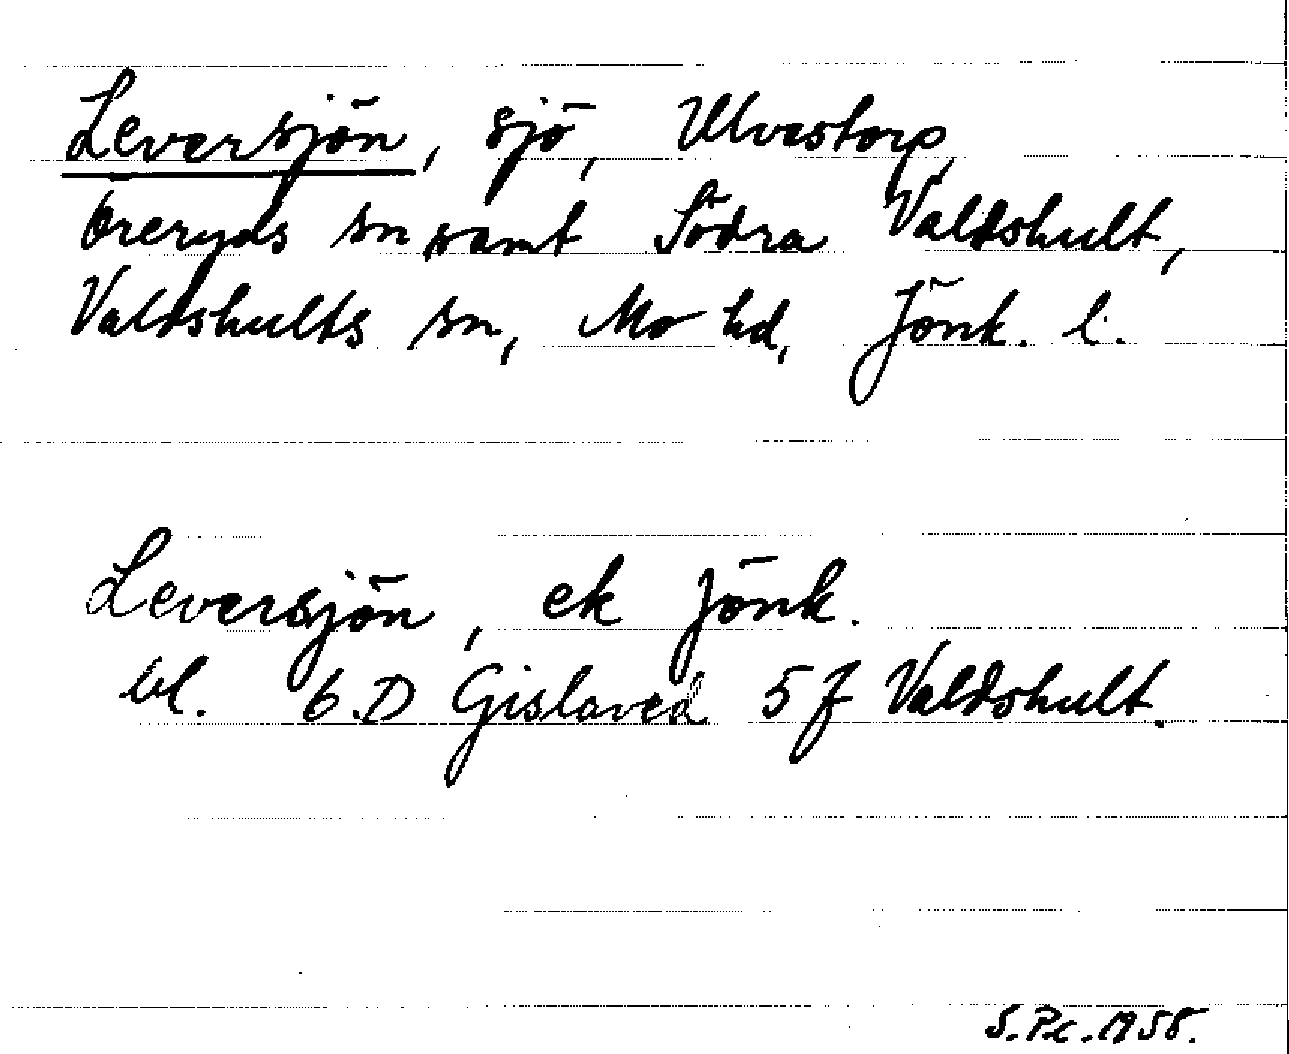 Leversjön, sjö, Ulvestorp,
Öreryds sn samt Södra Valdshult,
Valdshults sn, Mo hd, Jönk. l.
Leversjön, ek Jönk.
bl. 6.D Gislaved 5 f Valdshult.
S.Pc. 1958.